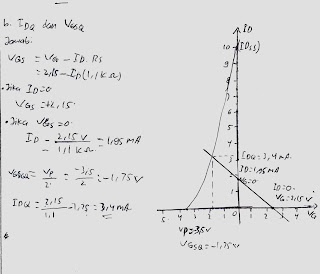 b. IDQ dan VGSQ
Jawab.
VGS = VG - ID. RS
= 2,15 - ID (1,1 KΩ)
• Jika ID = 0
VGS = +2,15.
• Jika VGS = 0.
ID - 2,15 V / 1,1 KΩ = 1,95 mA
VGSQ = VP / 2 = -3,5 / 2 = -1,75 V
IDQ = 2,15 / 1,1 -1,75 = 3,4 mA
ID
(IDSS)
10
9
8
7
6
5
4
3
2
1
IDQ = 3,4 mA
ID = 1,95 mA
VG = 0
ID = 0
VG = 2,15 V
-5 -4 -3 -2 -1 0 1 2 3
VP = -3,5 V
VGSQ = -1,75 V